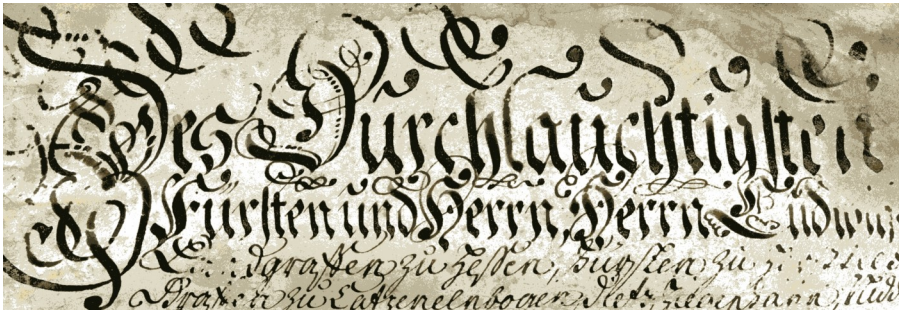 Des Durchlauchtigsten
Fürsten und Herrn, Herrn Ludwigs
Landgraffen zu Hessen, Fürsten zu
Graffen zu Catzenelnbogen, Dietz, Ziegenhayn, Nidd